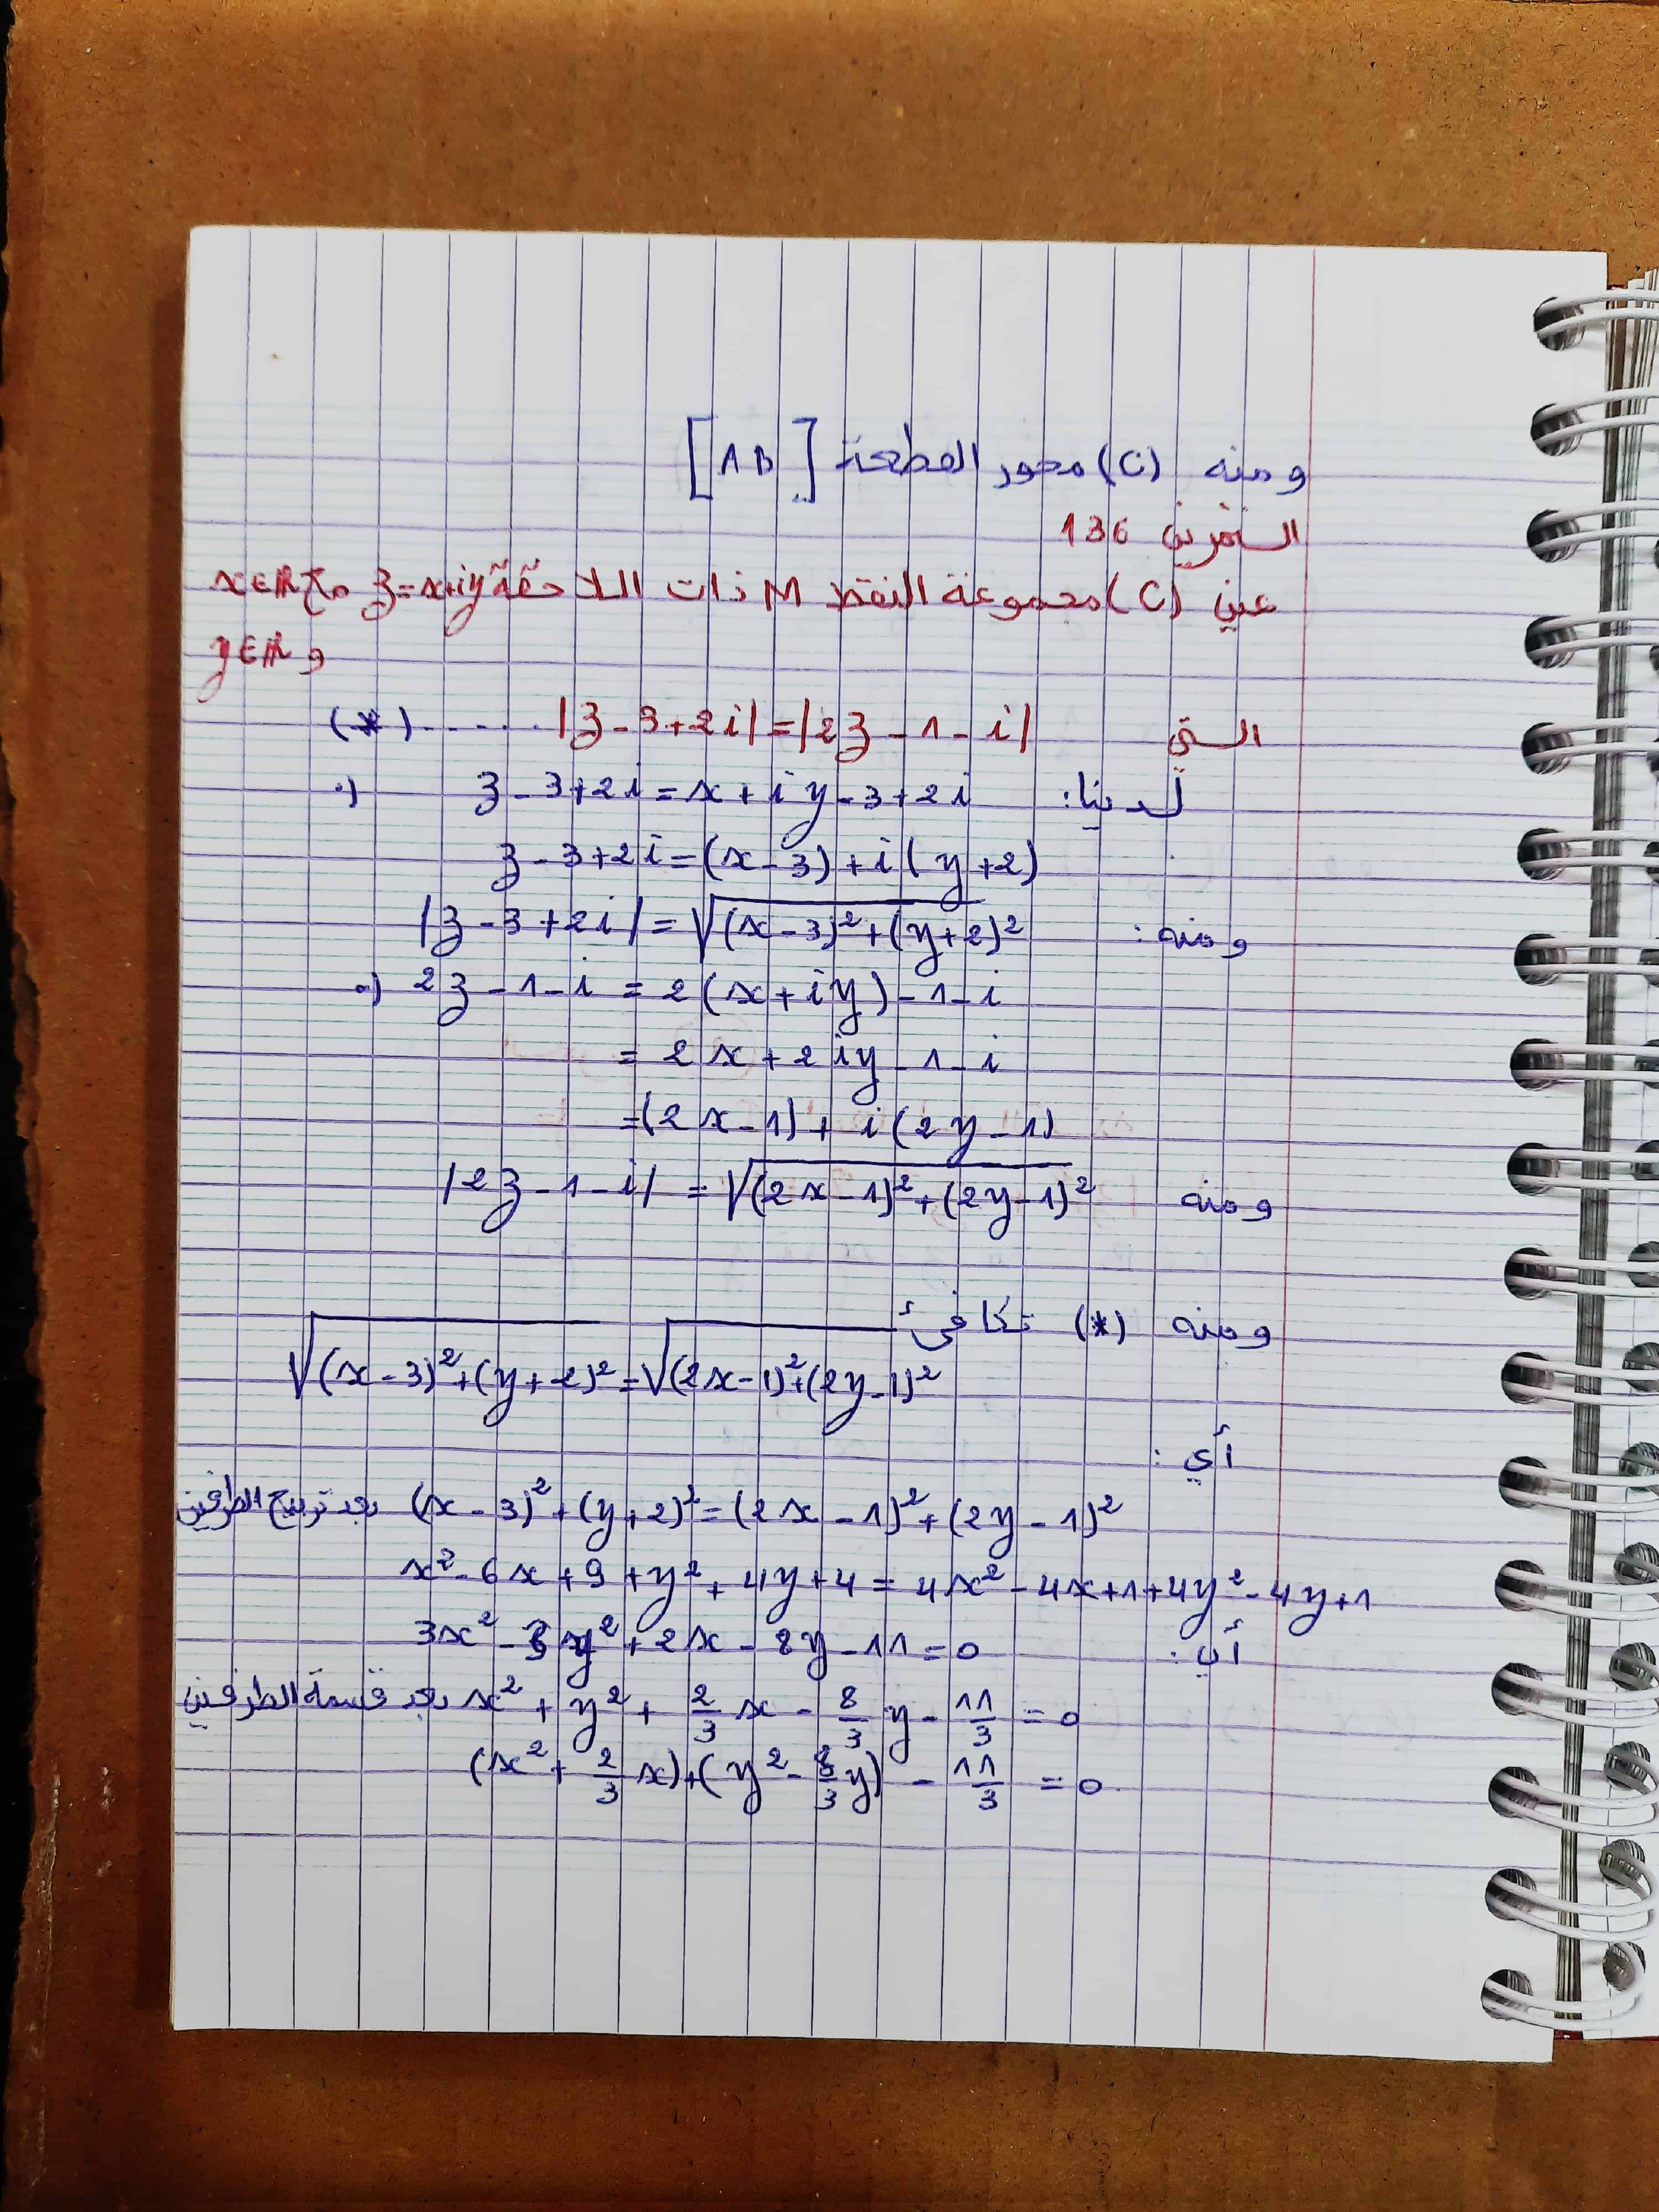 ومنه (C) محور القطعة [AB]
التمرين 136
عين (C) مجموعة النقط M ذات اللاحقة z=x+iy مع x∈ℝ
و y∈ℝ
التي |z-3+2i|=|2z-1-i| ......(*)
لدينا: z-3+2i=x+iy-3+2i •)
z-3+2i=(x-3)+i(y+2)
ومنه: |z-3+2i|=√(x-3)²+(y+2)²
•) 2z-1-i = 2(x+iy)-1-i
= 2x+2iy-1-i
=(2x-1)+i(2y-1)
ومنه |2z-1-i| = √(2x-1)²+(2y-1)²
ومنه (*) تكافئ
√(x-3)²+(y+2)²=√(2x-1)²+(2y-1)²
أي:
(x-3)²+(y+2)²=(2x-1)²+(2y-1)² بعد تربيع الطرفين
x²-6x+9+y²+4y+4=4x²-4x+1+4y²-4y+1
أي: 3x²-3y²+2x-8y-11=0
x²+y²+2/3x-8/3y-11/3=0 بعد قسمة الطرفين
(x²+2/3x)+(y²-8/3y)-11/3=0